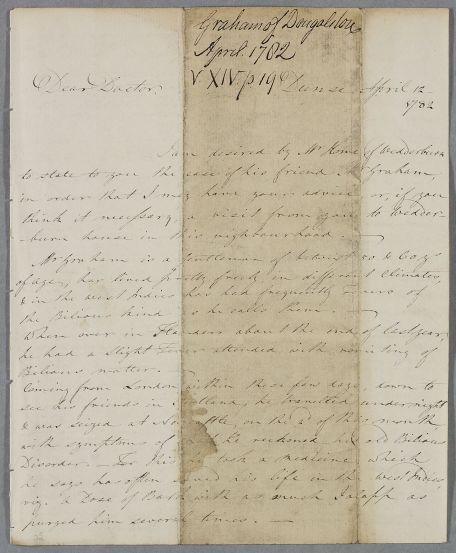 Graham of Dougalston
April. 1782
V XIV/p 19
Dear Doctor,
Dunse April 12
1782
I am desired by Mr Home of Wedderburn
to state to you the case of his friend Mr Graham,
in order that I may have your advice or, if you
think it necessary, a visit from you to Wedder-
-burn house in this neighbourhood —
Mr Graham is a Gentleman of betwixt 50 & 60 yrs
of age, has lived pretty freely in different Climates,
& in the West Indies has had frequently Fevers of
the Bilious kind as he calls them. —
When over in Flanders about the end of last year,
he had a Slight Fever attended with vomiting of
Bilious matter.
Coming from London within these few days, down to
see his friends in Scotland, he travelled under night
& was seized at on the 2d of this month
with symptoms of what he reckoned his old Bilious
Disorder. — For this he took a medicine which
he says has often saved his life in the West Indies,
viz. a Dose of Bark with as much Jalapp as
purged him several times. —